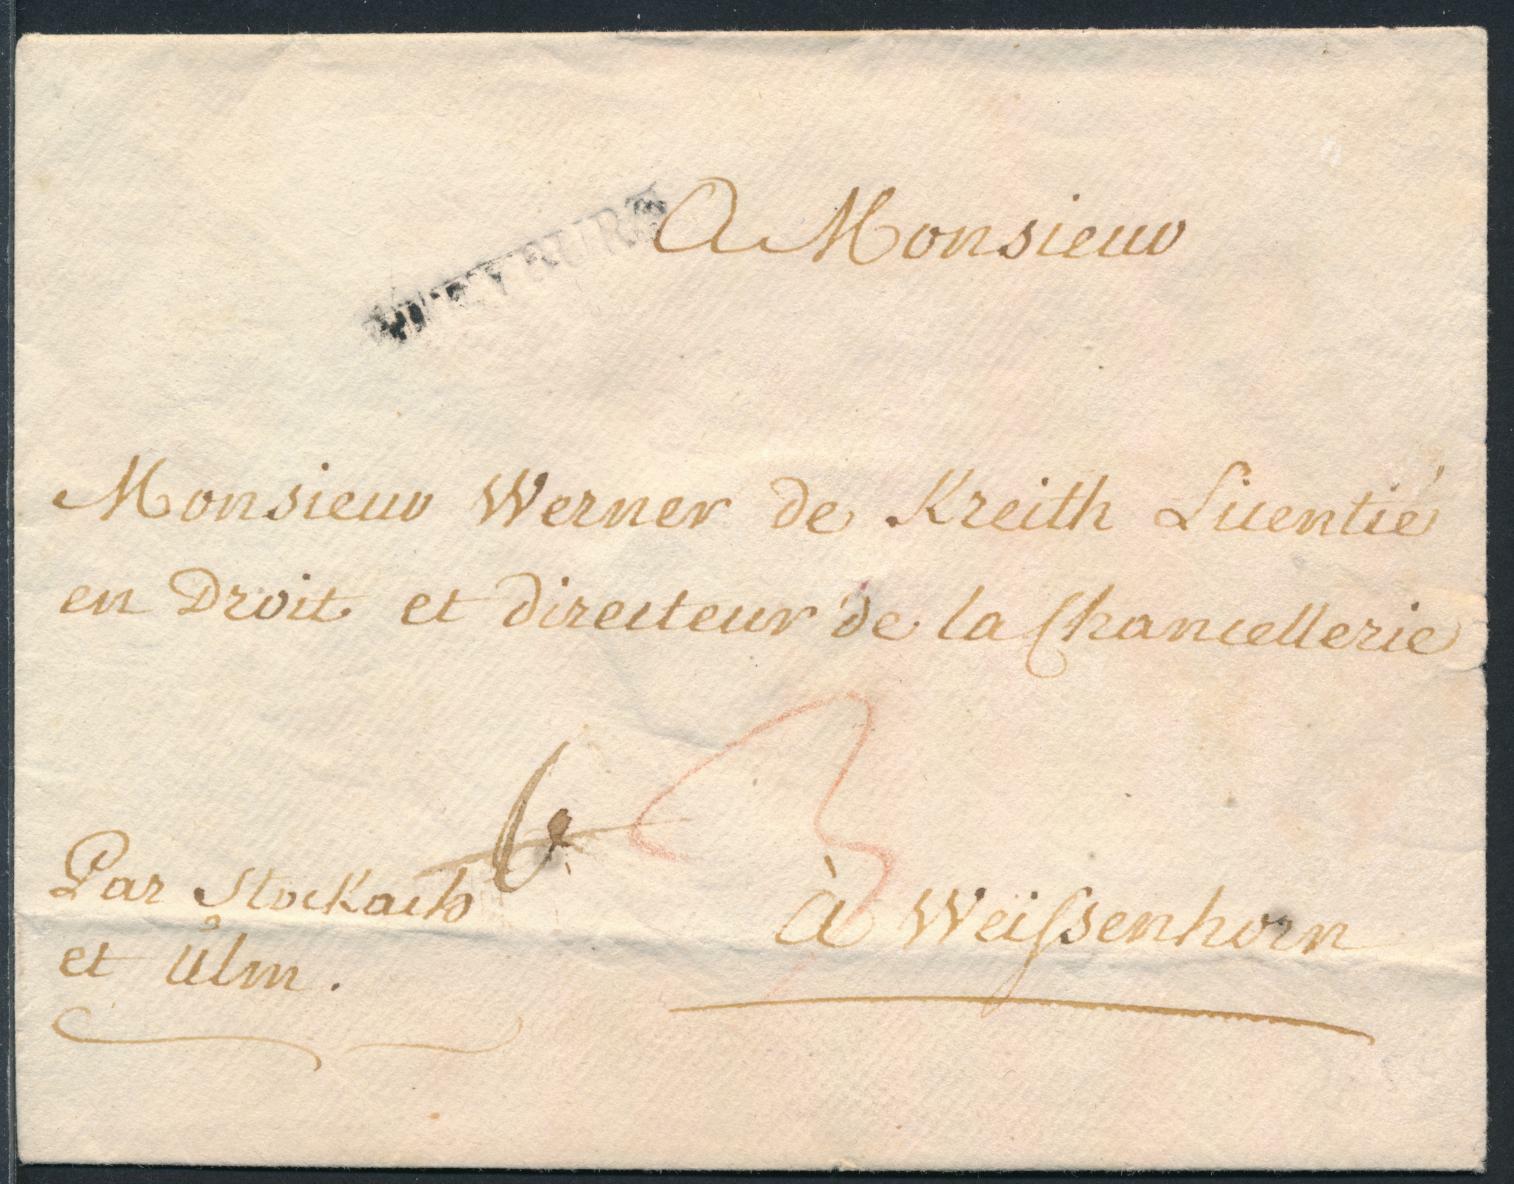 A Monsieur
Monsieur Werner de Kreith Licentié
en Droit et directeur de la Chancellerie
6
3
Par Stockach
et Ulm.
à Weissenhorn